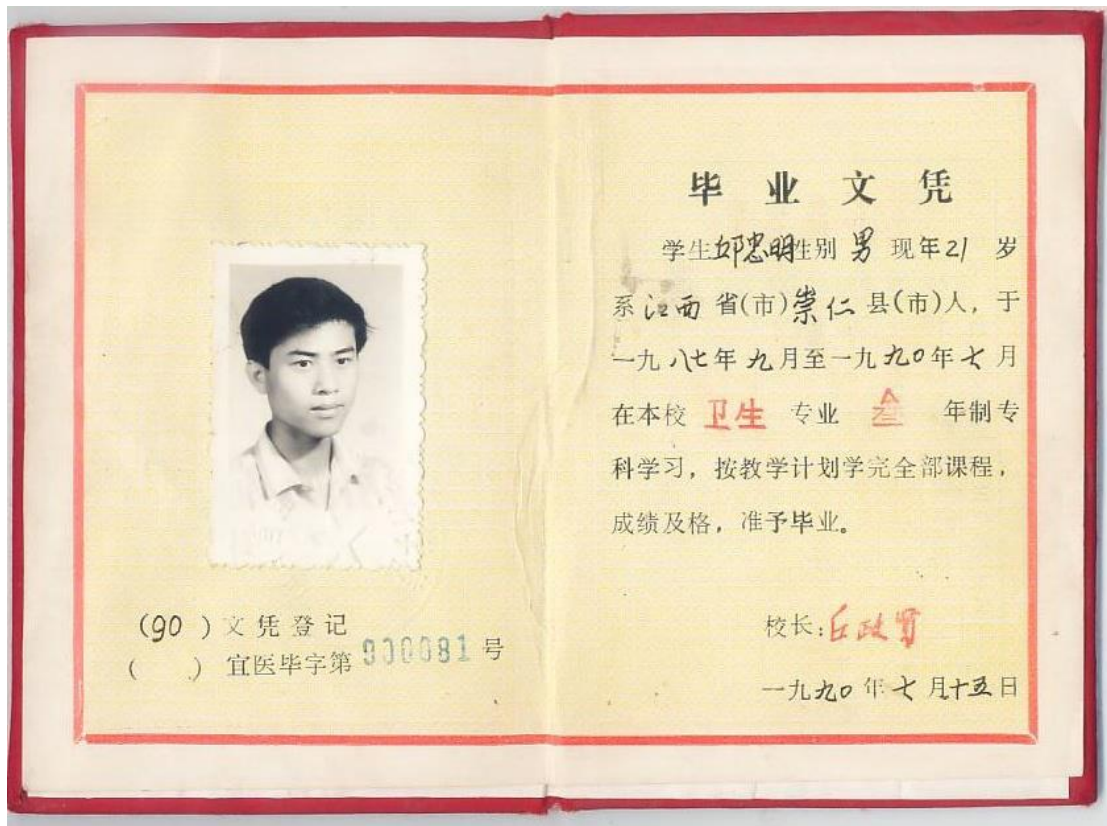 (90 ) 文凭登记
( ) 宜医毕字第 900081 号
毕业文凭
学生 邱忠明 性别 男 现年 21 岁
系 江西 省(市) 崇仁 县(市)人, 于
一九八七年九月至一九九〇年七月
在本校 卫生 专业 叁 年制专
科学习, 按教学计划学完全部课程,
成绩及格, 准予毕业。
校长: 丘政贤
一九九〇年七月十五日